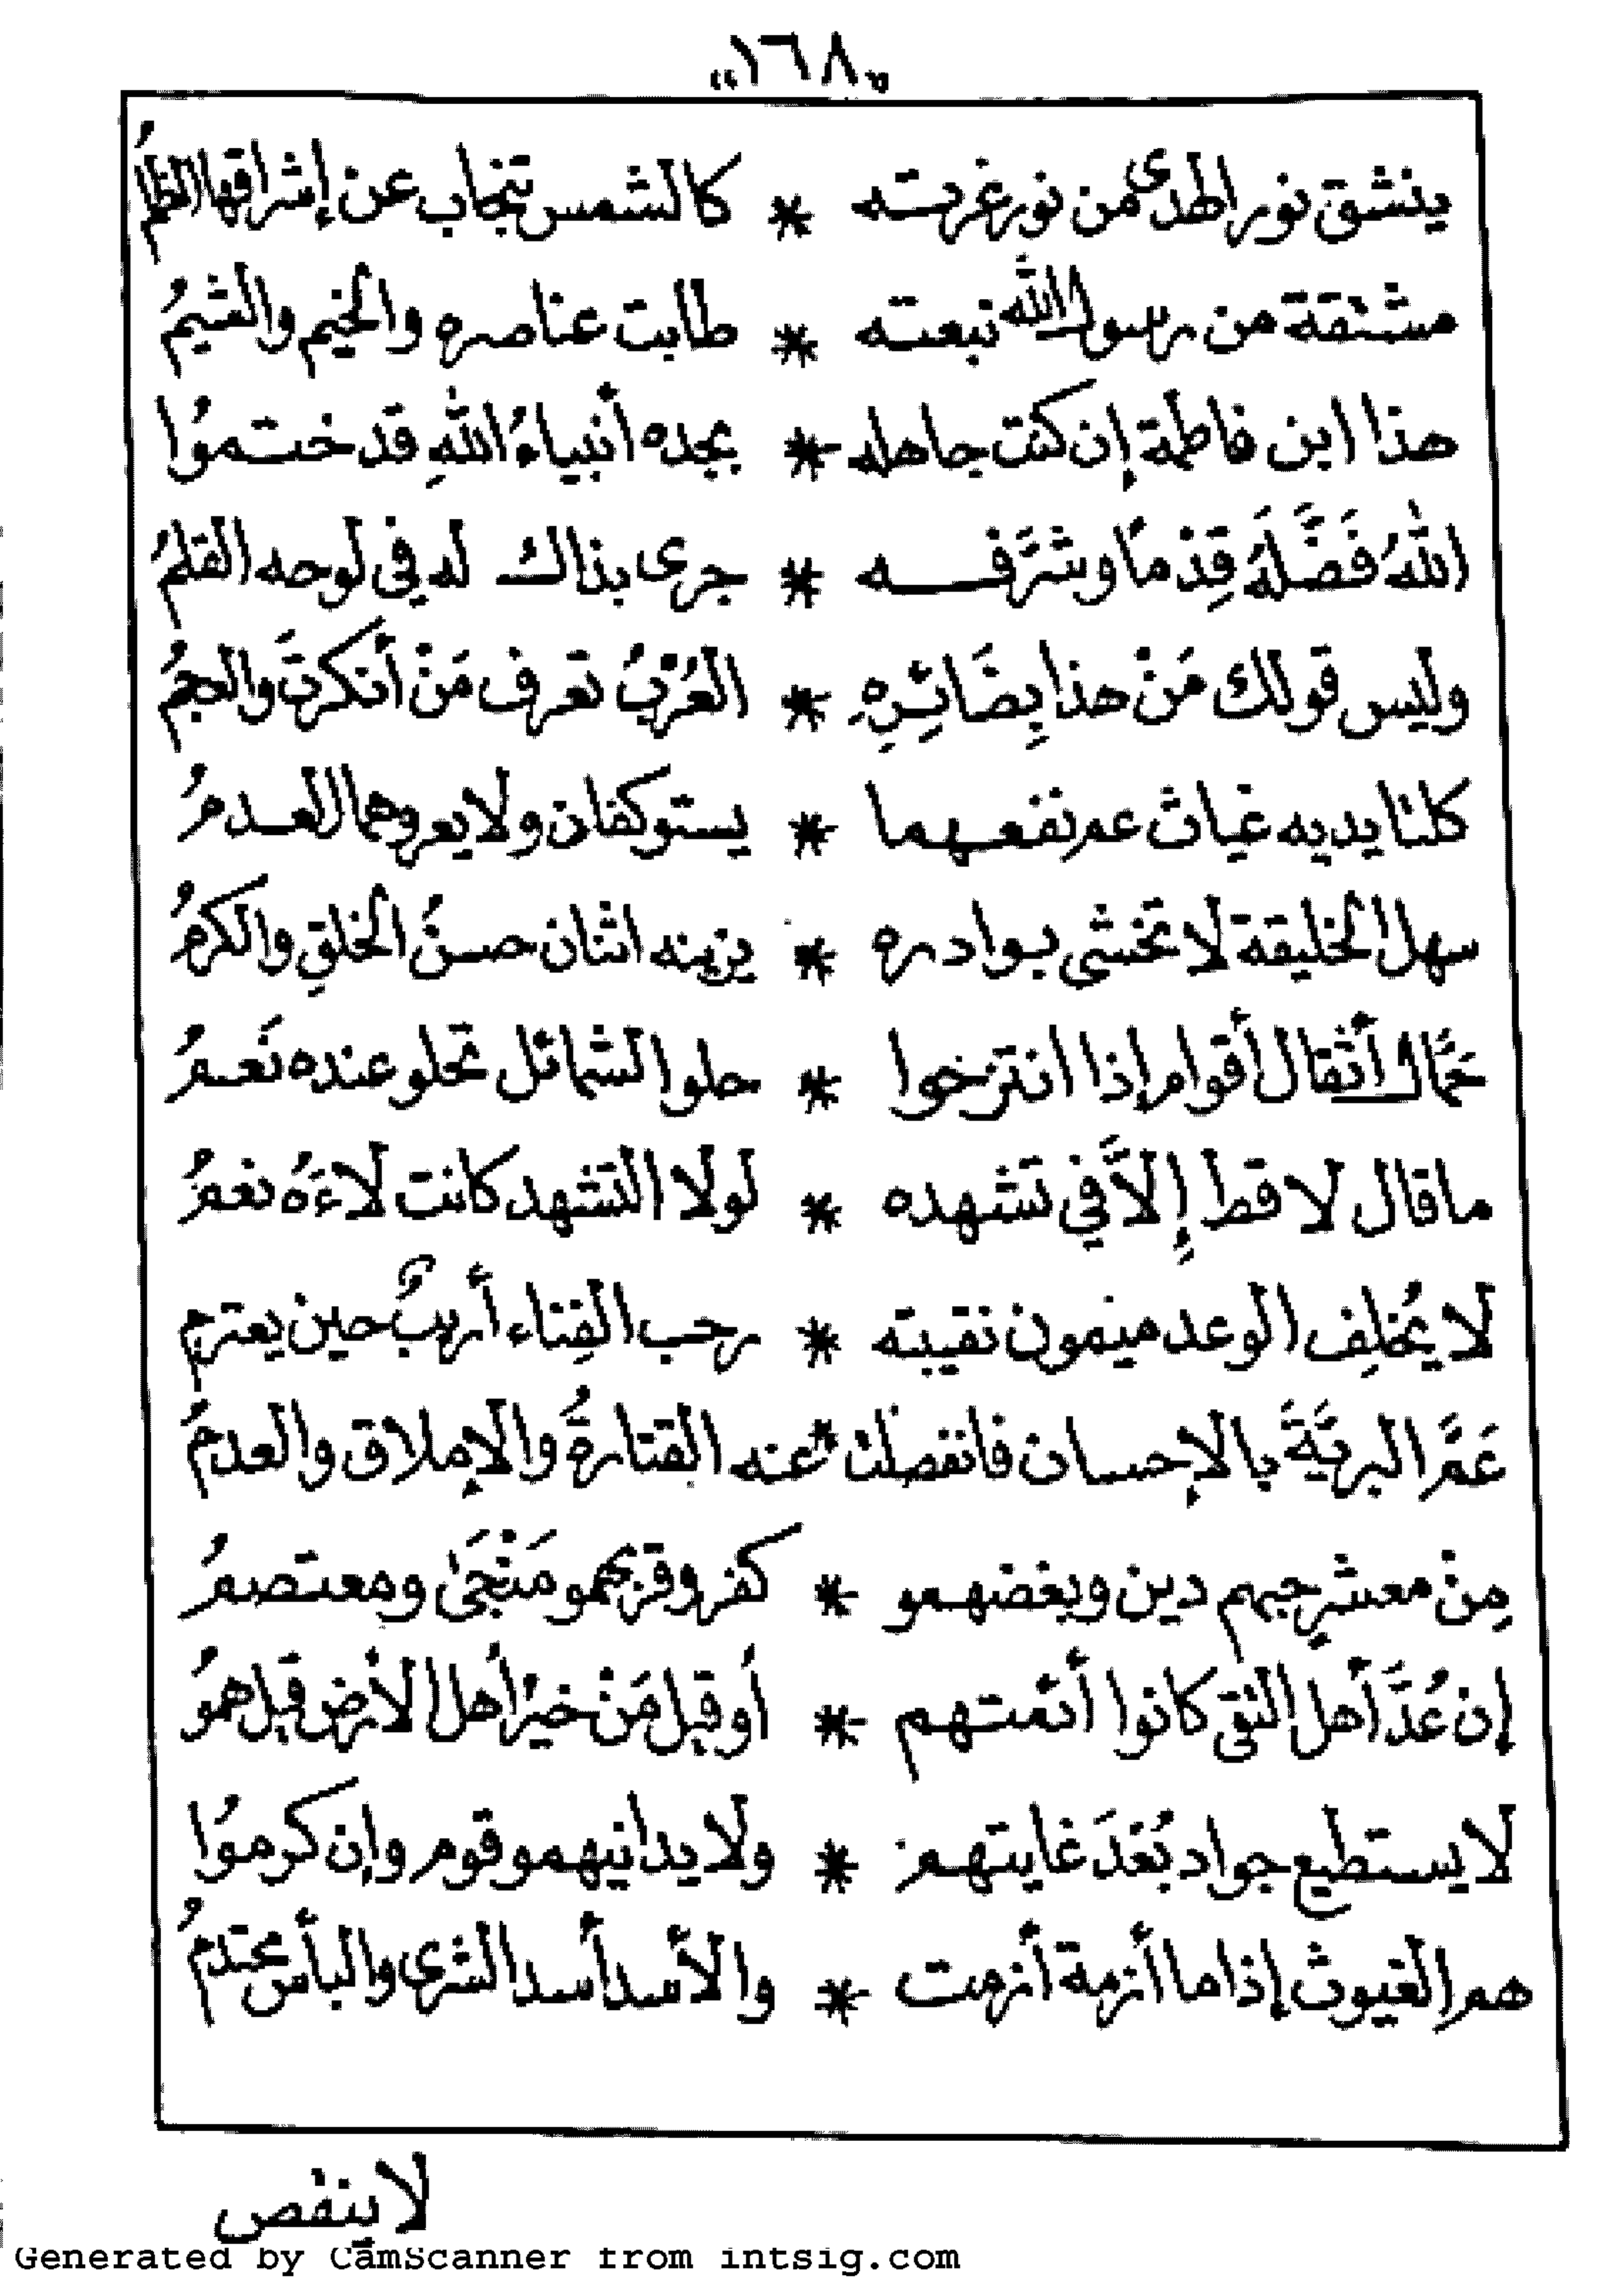 «١٦٨»
ينشق نور الهدى من نور غرته * كالشمس تنجاب عن إشراقها الظلمُ
مشتقة من رسول الله نبعته * طابت عناصره والخيم والشيمُ
هذا ابن فاطمة إن كنت جاهله * بجده أنبياءُ اللهِ قد ختموُا
اللهُ فَضَّلَهُ قِدْمًا وشرَّفـــه * جرى بذاك له في لوحه القلمُ
وليس قولك مَنْ هذا بِضَائِرِهِ * العُرْبُ تعرف مَنْ أنكرتَ والعجمُ
كلتا يديه غياث عم نفعهما * يستوكفان ولا يعروهما العدمُ
سهل الخليقة لا تخشى بوادره * يزينه اثنان حسنُ الخلقِ والكرمُ
حَمَّال أثقال أقوام إذا انتزخوا * حلو الشمائل تحلو عنده نَعَمُ
ما قال لا قط إِلاَّ في تشهده * لولا التشهد كانت لاَءَهُ نعمُ
لا يُخلِف الوعد ميمون نقيبته * رحب الفِناء أريبٌ حين يعتزم
عَمَّ البريَّةَ بالإحسان فانفصلت * عنه القتارةُ والإملاق والعدمُ
مِنْ معشرٍ حبهم دين وبغضهمو * كفر وقربهمو مَنْجَىٰ ومعتصمُ
إن عُدَّ أهل التقى كانوا أئمتهم * أو قيل مَنْ خيرُ أهل الأرض قيل همُو
لا يستطيع جواد بُعْدَ غايتهمْ * ولا يدانيهمو قوم وإن كرموُا
هم الغيوث إذا ما أزمة أزمت * والأسد أسد الشرى والبأس محتدمُ
لا ينقص
Generated by CamScanner from intsig.com